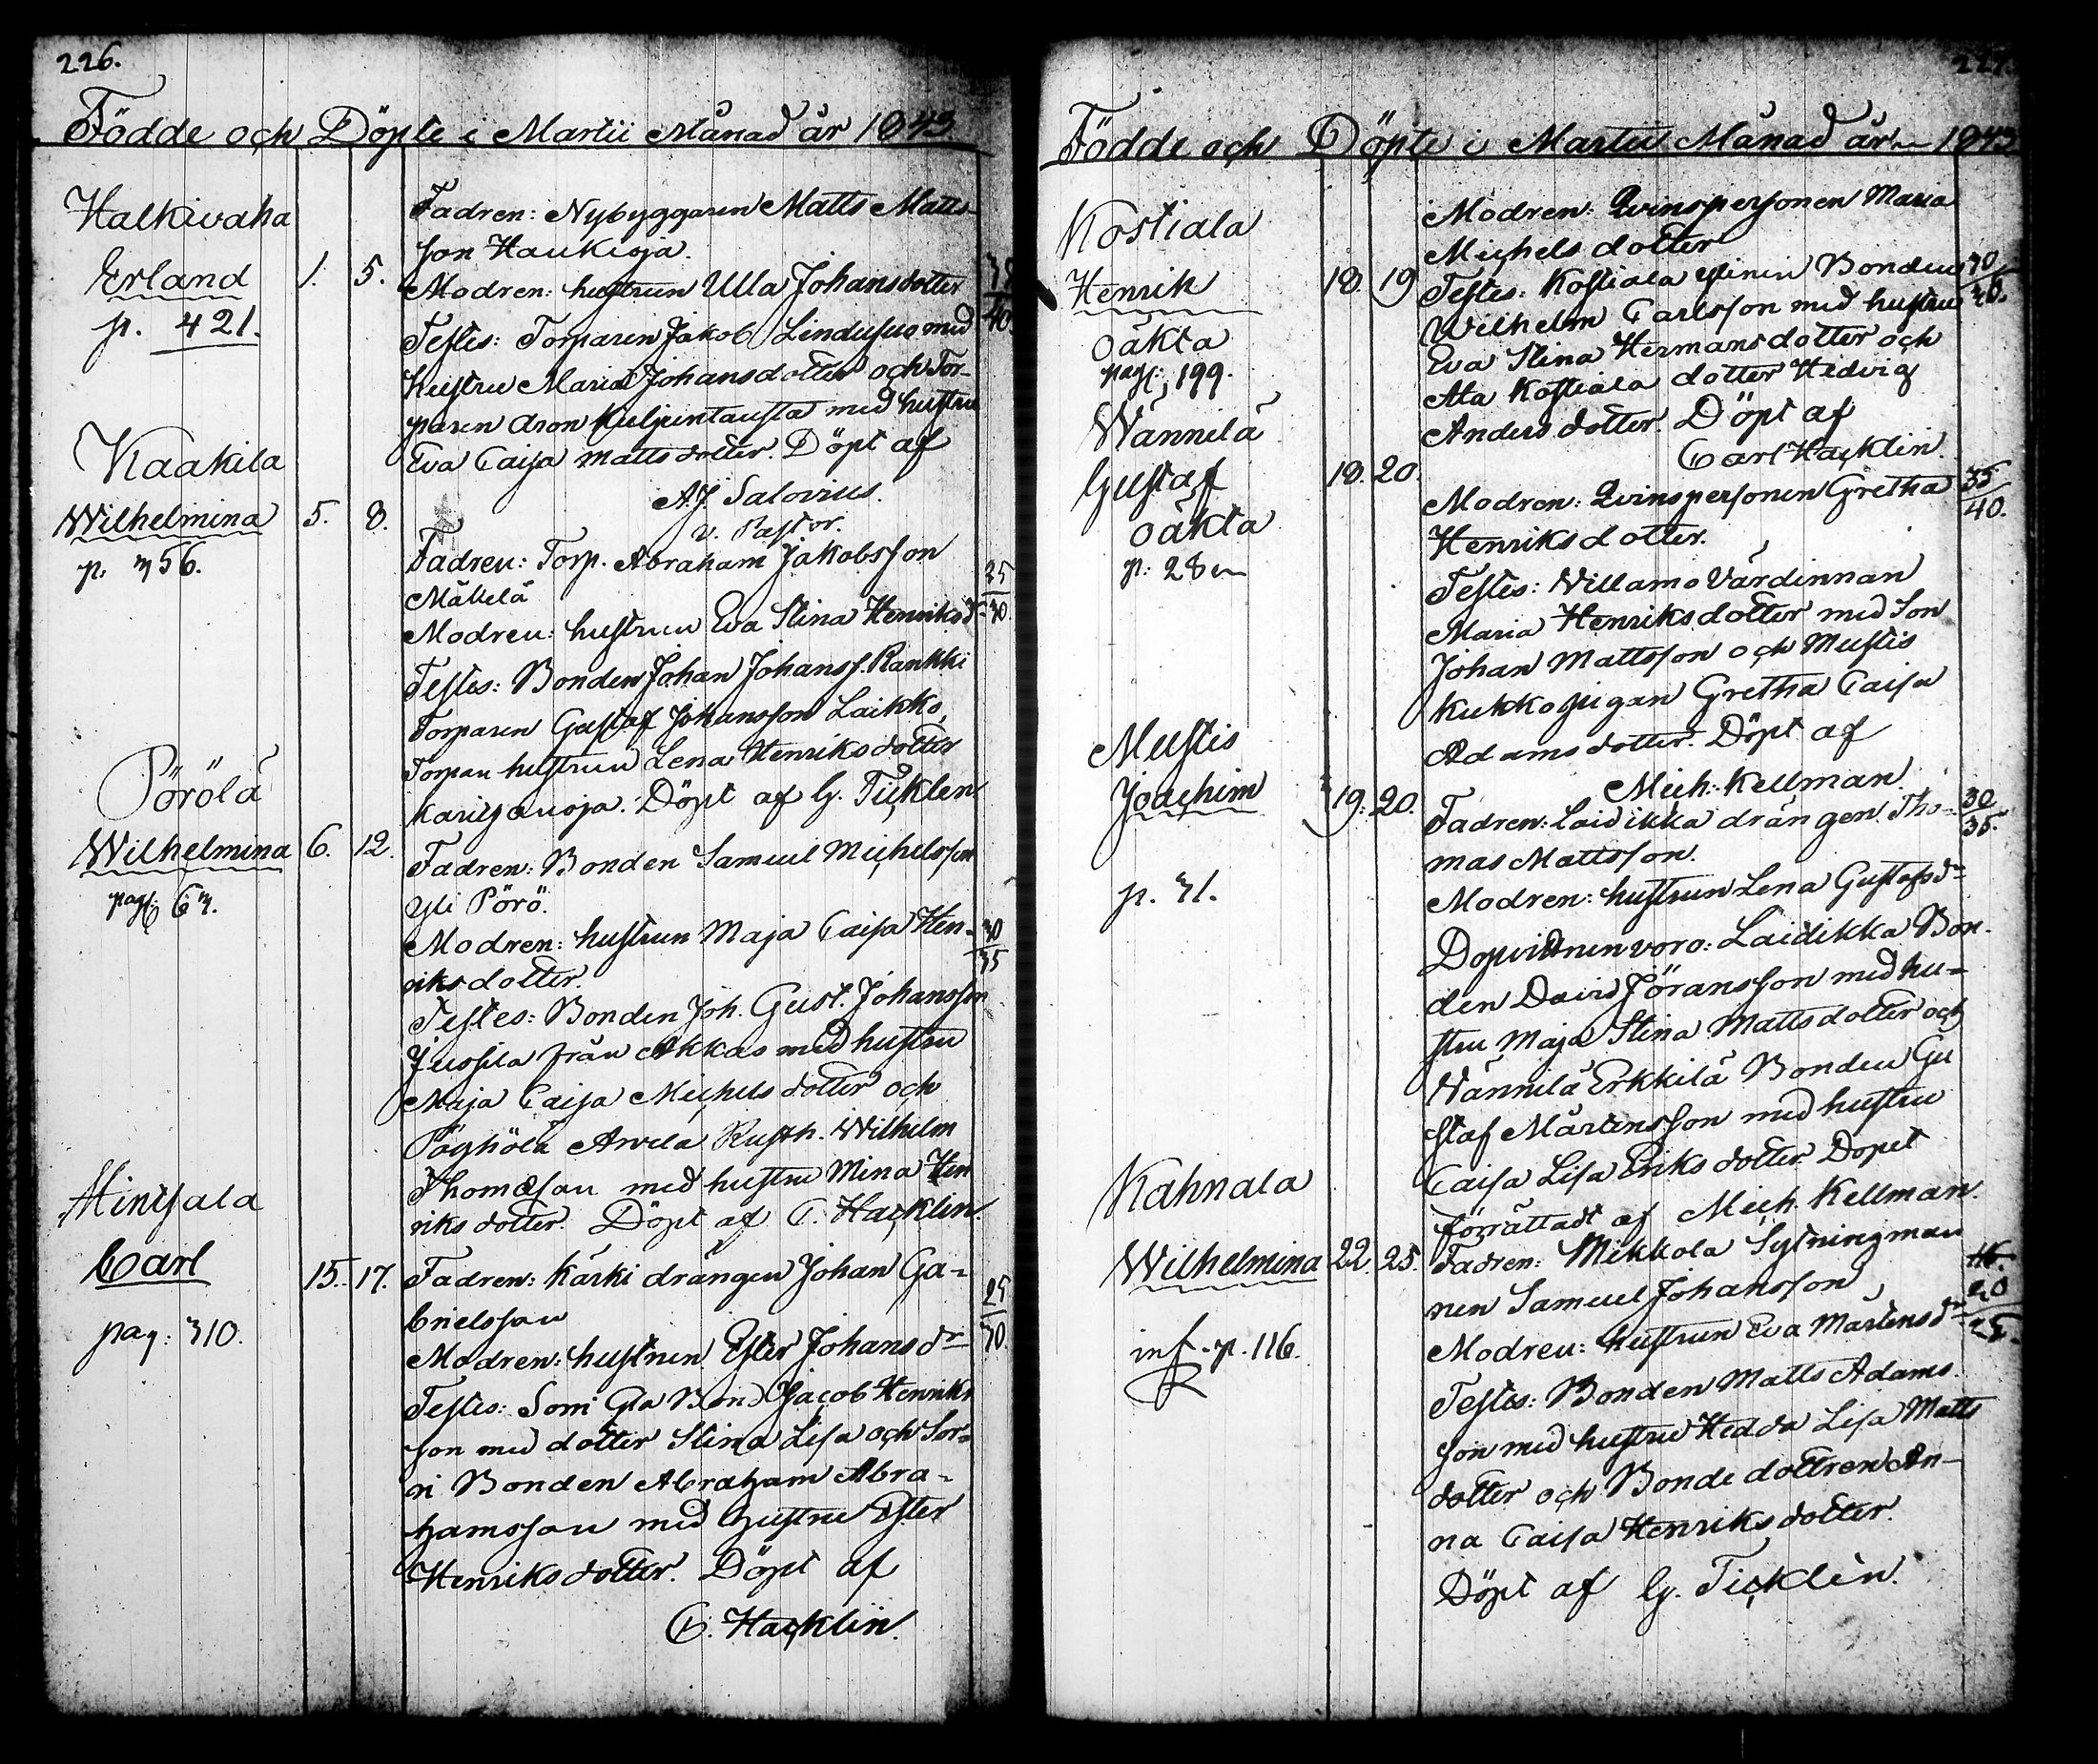 226.
Födde och Döpte i Martii Månad år 1843
Halkivaha
Erland 1. 5.
p. 421.
Fadren: Nybyggaren Matts Matts-
son Haukioja.
Modren: hustrun Ulla Johansdotter
40.
Testes: Torparen Jakob Lindusuo med
hustru Maria Johansdotter och Tor-
paren Aron Kuljuntausta med hustru
Eva Caisa Mattsdotter. Döpt af
A.J. Salovius.
v. Pastor.
Kaakila
Wilhelmina 5. 8.
p. 356.
Fadren: Torp. Abraham Jakobsson
Mäkelä
Modren: hustrun Eva Stina Henriksdr
25
30.
Testes: Bonden Johan Johanss. Rankki
Torparen Gustaf Johansson Laikko,
Torpare hustrun Lena Henriksdotter
Karitsanoja. Döpt af G. Ticklén
Pörölä
Wilhelmina 6. 12.
pag: 63.
Fadren: Bonden Samuel Michelsson
Yli Pörö.
Modren: hustrun Maja Caisa Hen-
riksdotter.
30
35
Testes: Bonden Joh. Gust. Johansson
Jussila från Akkas med hustru
Maja Caisa Michelsdotter och
Arvela Rusth. Wilhelm
Thomasson med hustru Mina Hen
riksdotter. Döpt af C. Hacklin.
Mintsala
Carl 15. 17.
pag: 310.
Fadren: Kärki drängen Johan Ga-
brielsson
Modren: hustrun Ester Johansdr
25
30.
Testes: Bond Jacob Henriks
son med dotter Stina Lisa och Sor-
ri Bonden Abraham Abra-
hamsson med hustru Ester
Henriksdotter. Döpt af
C. Hacklin.
227.
Födde och Döpte i Martii Månad år 1843
Kostiala
Henrik 18. 19
oäkta
pag: 199.
Modren: Qvinspersonen Maria
Michelsdotter
30
40.
Testes: Kostiala Bonden
Wilhelm Carlsson med hustru
Eva Stina Hermansdotter och
Ala Kostiala dotter Hedvig
Andersdotter. Döpt af
Carl Hacklin
Wännilä
Gustaf 18. 20.
oäkta
p: 28
Modren: Qvinspersonen Gretha
Henriksdotter.
35
40.
Testes: Willamo Värdinnan
Maria Henriksdotter med Son
Johan Mattsson och Mustis
Kukko pigan Gretha Caisa
Adamsdotter. Döpt af
Mich: Kellman.
Mustis
Joachim 19. 20.
p. 31.
Fadren: Laidikka drängen Tho-
mas Mattsson.
30
35.
Modren: hustrun Lena Gustafsdr
Dopvittnen voro: Laidikka Bon-
den David Jöransson med hu-
stru Maja Stina Mattsdotter och
Wännilä Erkkilä Bonden Gu
staf Mårtensson med hustru
Caisa Lisa Eriksdotter. Dopet
förrättadt af Mich. Kellman.
Kahnala
Wilhelmina 22. 25.
inf. p. 116.
Fadren: Mikkola Sytningman
nen Samuel Johansson
Modren: hustrun Eva Mårtensdr
20
25.
Testes: Bonden Matts Adams-
son med hustru Hedda Lisa Matts
dotter och Bonde dottren An-
na Caisa Henriksdotter.
Döpt af G. Ticklén.